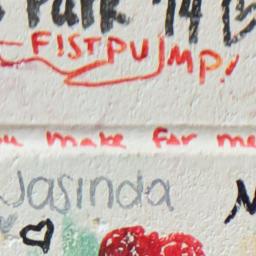 Park 14
FISTPUMP!
make for me
Jasinda